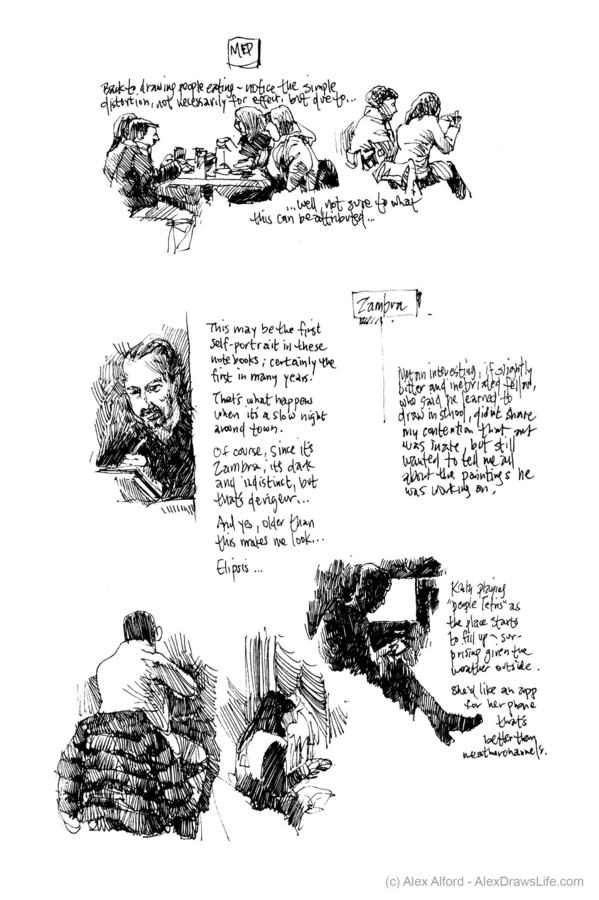 MED
Back to drawing people eating ~ notice the simple
distortion, not necessarily for effect, but due to...
...well, not sure to what
this can be attributed...
Zambra
This may be the first
self-portrait in these
notebooks; certainly the
first in many years.
That's what happens
when it's a slow night
around town.
Of course, since it's
Zambra, it's dark
and indistinct, but
that's derigeur...
And yes, older than
this makes me look...
Elipsis ...
an interesting, if slightly
bitter and inebriated fellow,
who said he learned to
draw in school, didn't share
my contention that art
was innate, but still
wanted to tell me all
about the paintings he
was working on.
playing
"people Tetris" as
the place starts
to fill up ~ sur-
prising given the
weather outside.
She'd like an app
for her phone
that's
better then
weatherchannel's.
(c) Alex Alford - AlexDrawsLife.com